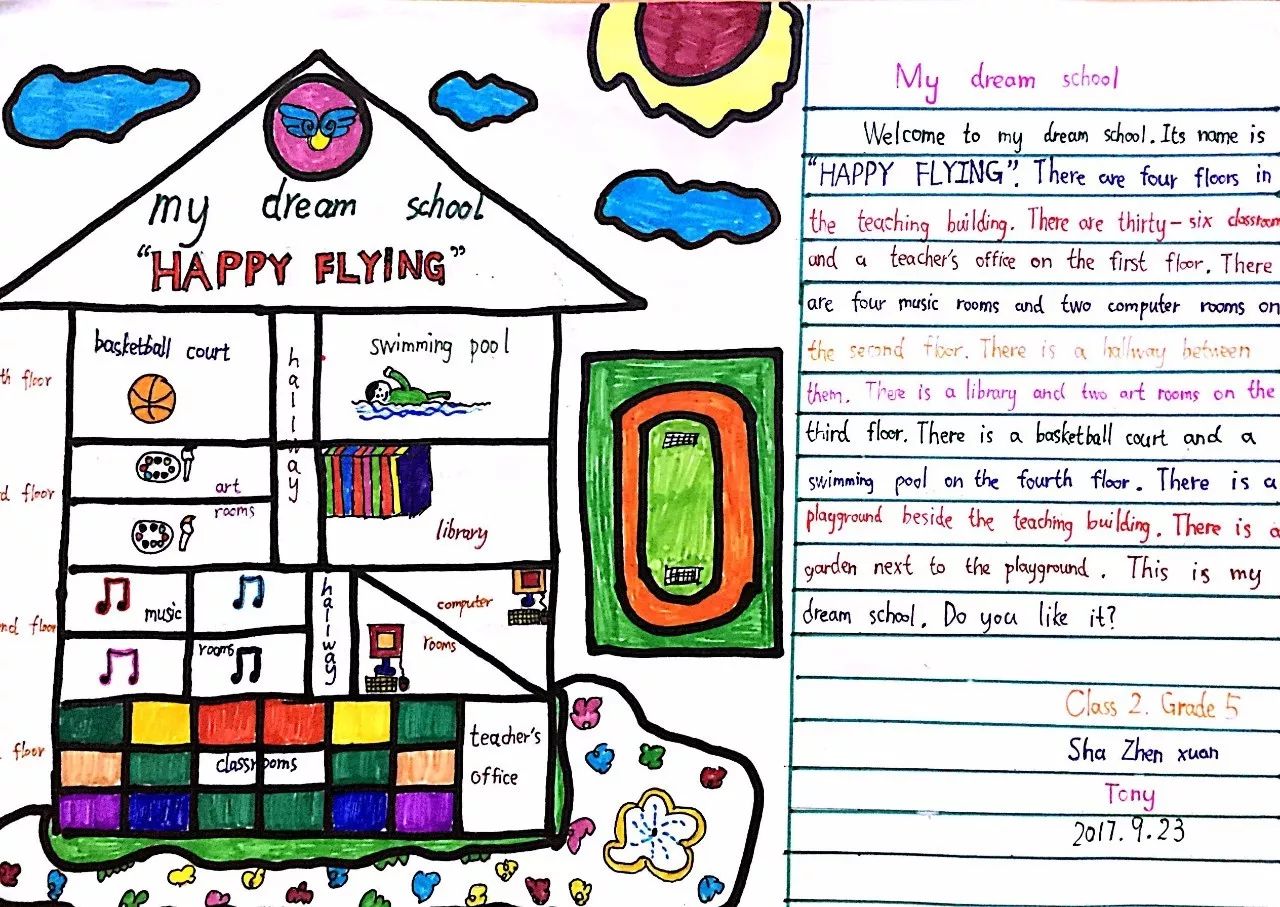 my dream school
"HAPPY FLYING"
basketball court
hallway
swimming pool
th floor
art
rooms
d floor
library
music
rooms
hallway
computer
rooms
nd floor
classrooms
teacher's
office
floor
My dream school
Welcome to my dream school. Its name is
"HAPPY FLYING". There are four floors in
the teaching building. There are thirty-six classroom
and a teacher's office on the first floor. There
are four music rooms and two computer rooms on
the second floor. There is a hallway between
them. There is a library and two art rooms on the
third floor. There is a basketball court and a
swimming pool on the fourth floor. There is a
playground beside the teaching building. There is a
garden next to the playground. This is my
dream school. Do you like it?
Class 2. Grade 5
Sha Zhen xuan
Tony
2017.9.23